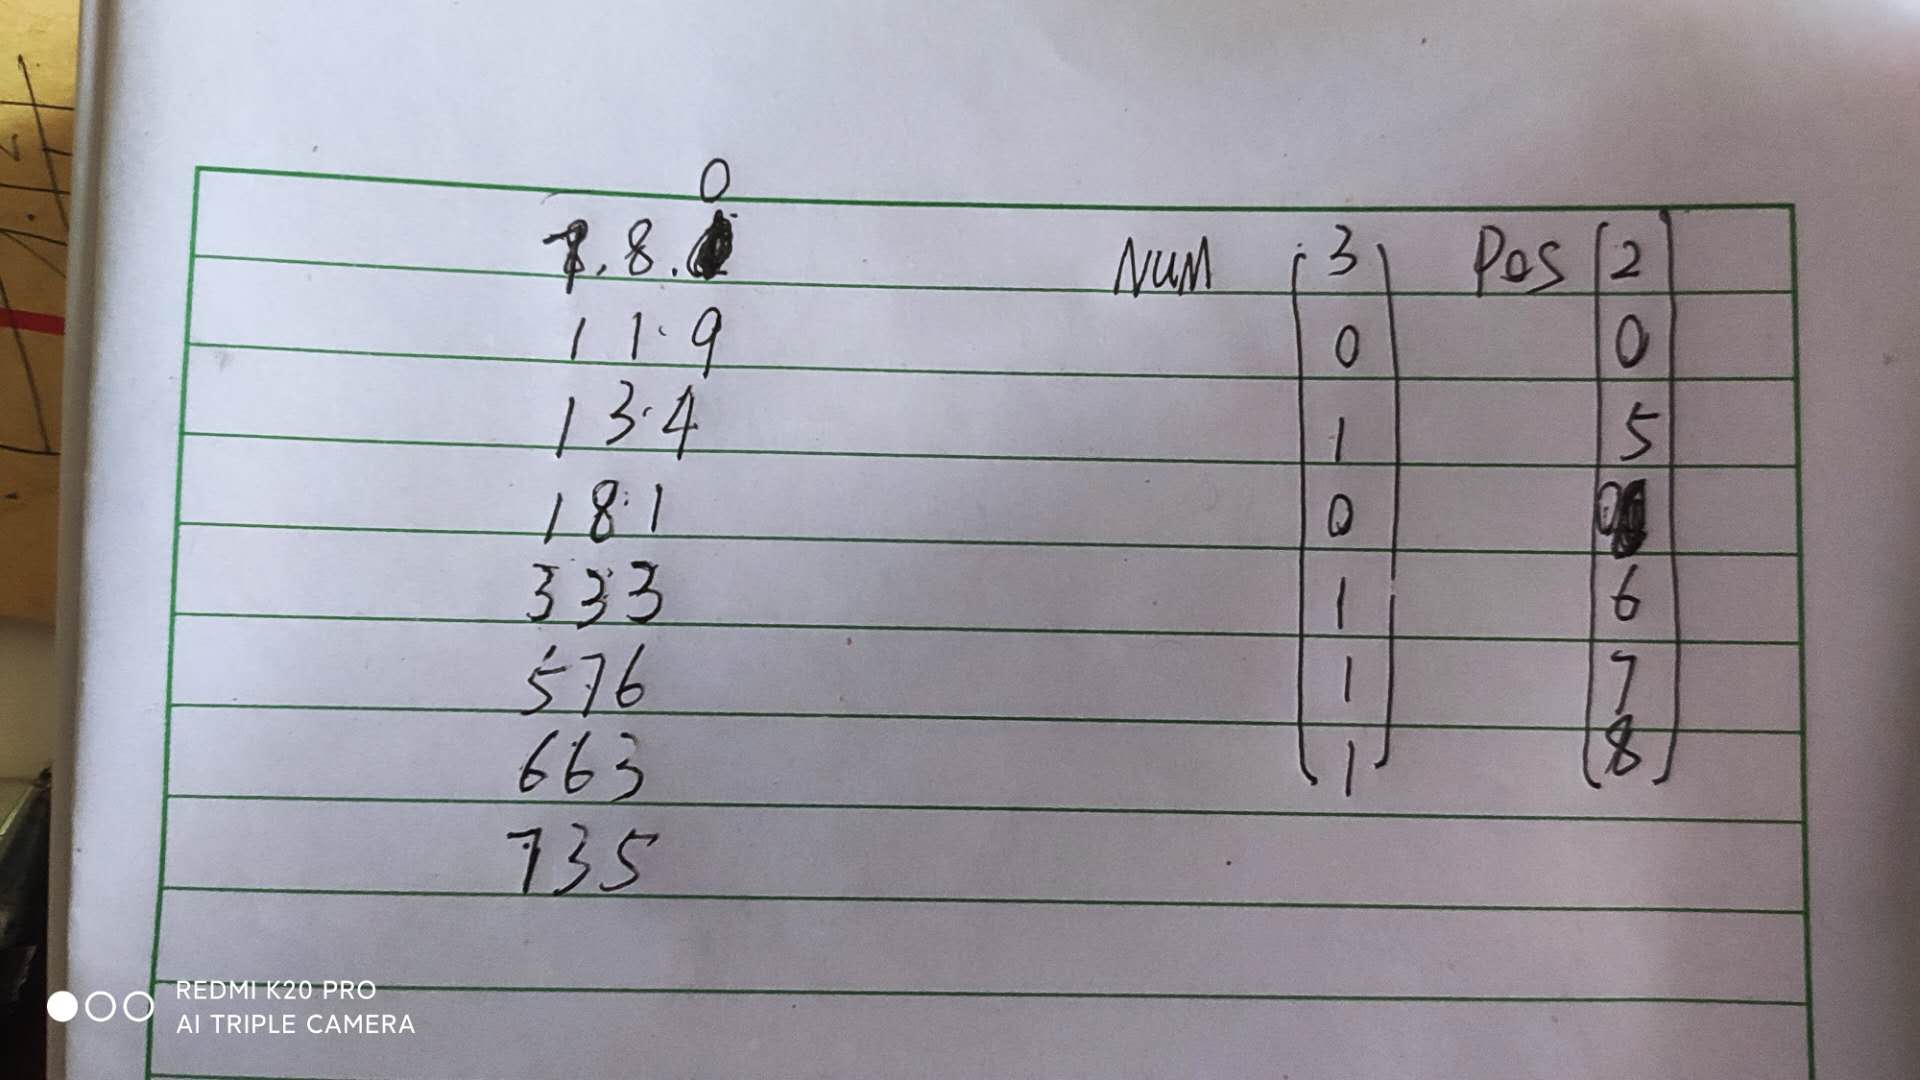 0
7.8.
11.9
13.4
18.1
333
576
663
735
NUM 3
0
1
0
1
1
1
Pos 2
0
5
0
6
7
8
REDMI K20 PRO
AI TRIPLE CAMERA